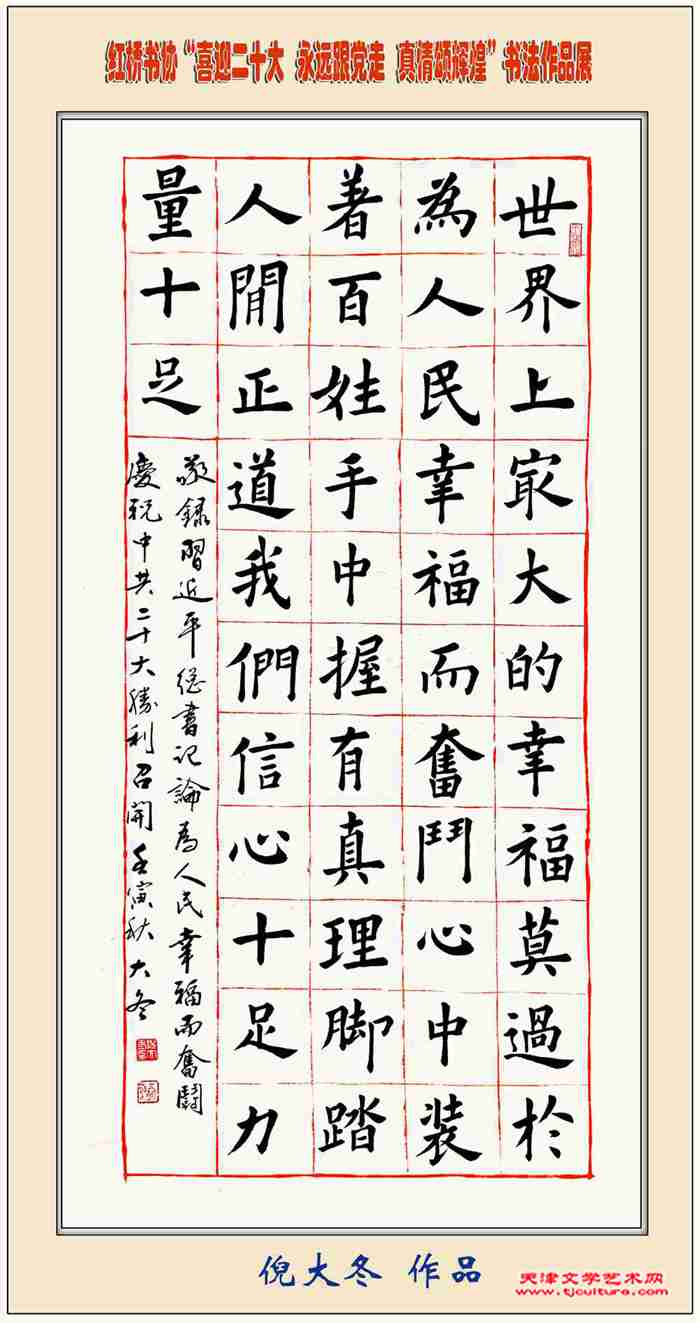 红桥书协“喜迎二十大 永远跟党走 真情颂辉煌”书法作品展
世界上㝡大的幸福莫過於
為人民幸福而奮鬥心中装
著百姓手中握有真理脚踏
人間正道我們信心十足力
量十足
敬録習近平總書記論為人民幸福而奮鬪
慶祝中共二十大勝利召開壬寅秋大冬
倪大冬 作品
天津文学艺术网
www.tjculture.com